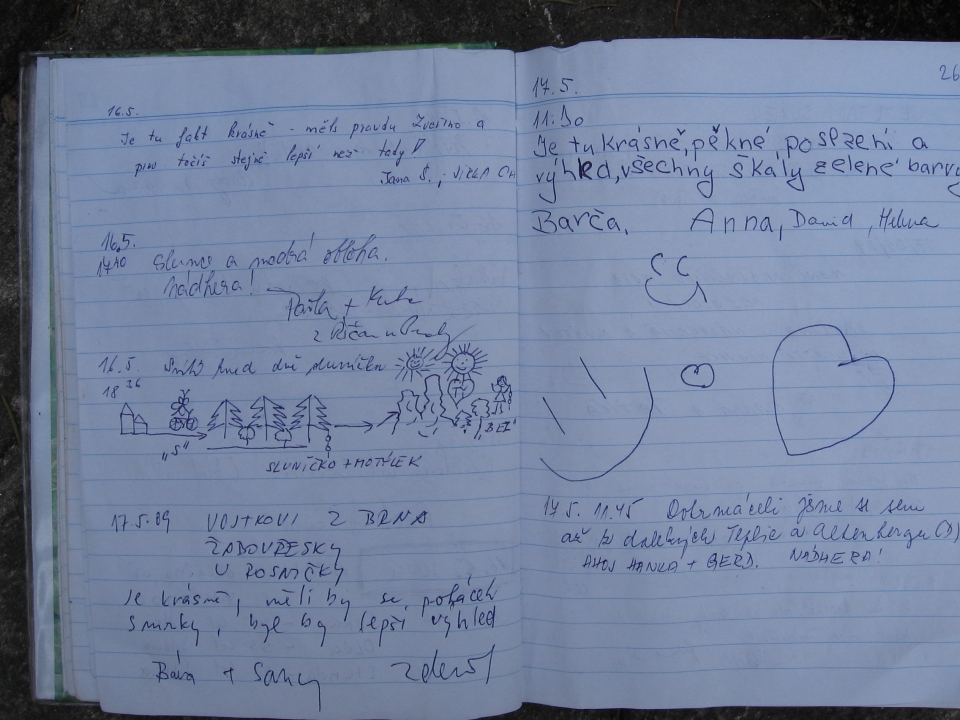 16.5.
Je tu fakt krásně - měls pravdu a
pivo točíš stejně lepší než tady!
Jana Š.,
16.5.
17 40 Slunce a modrá obloha.
Nádhera!
Pavla + Kuba
z Říčan u Prahy
16.5. před dni sluníčko
18 36
"S" "BEZ"
SLUNÍČKO + MOTÝLEK
17.5.09 VOJTKOVI Z BRNA
ŽABOVŘESKY
U ROSNIČKY
Je krásně, měli by se pokácet
smrky, byl by lepší výhled
Bára + Zdeněk
26
17.5.
11.30
Je tu krásně, pěkné posezení a
výhled, všechny škály zelené barvy
Barča, Anna, David, Helena
17.5. 11.45 jsme se sem
až z dalekých Teplic a Altenbergu (D)
AHOJ HANKA + GERD. NÁDHERA!